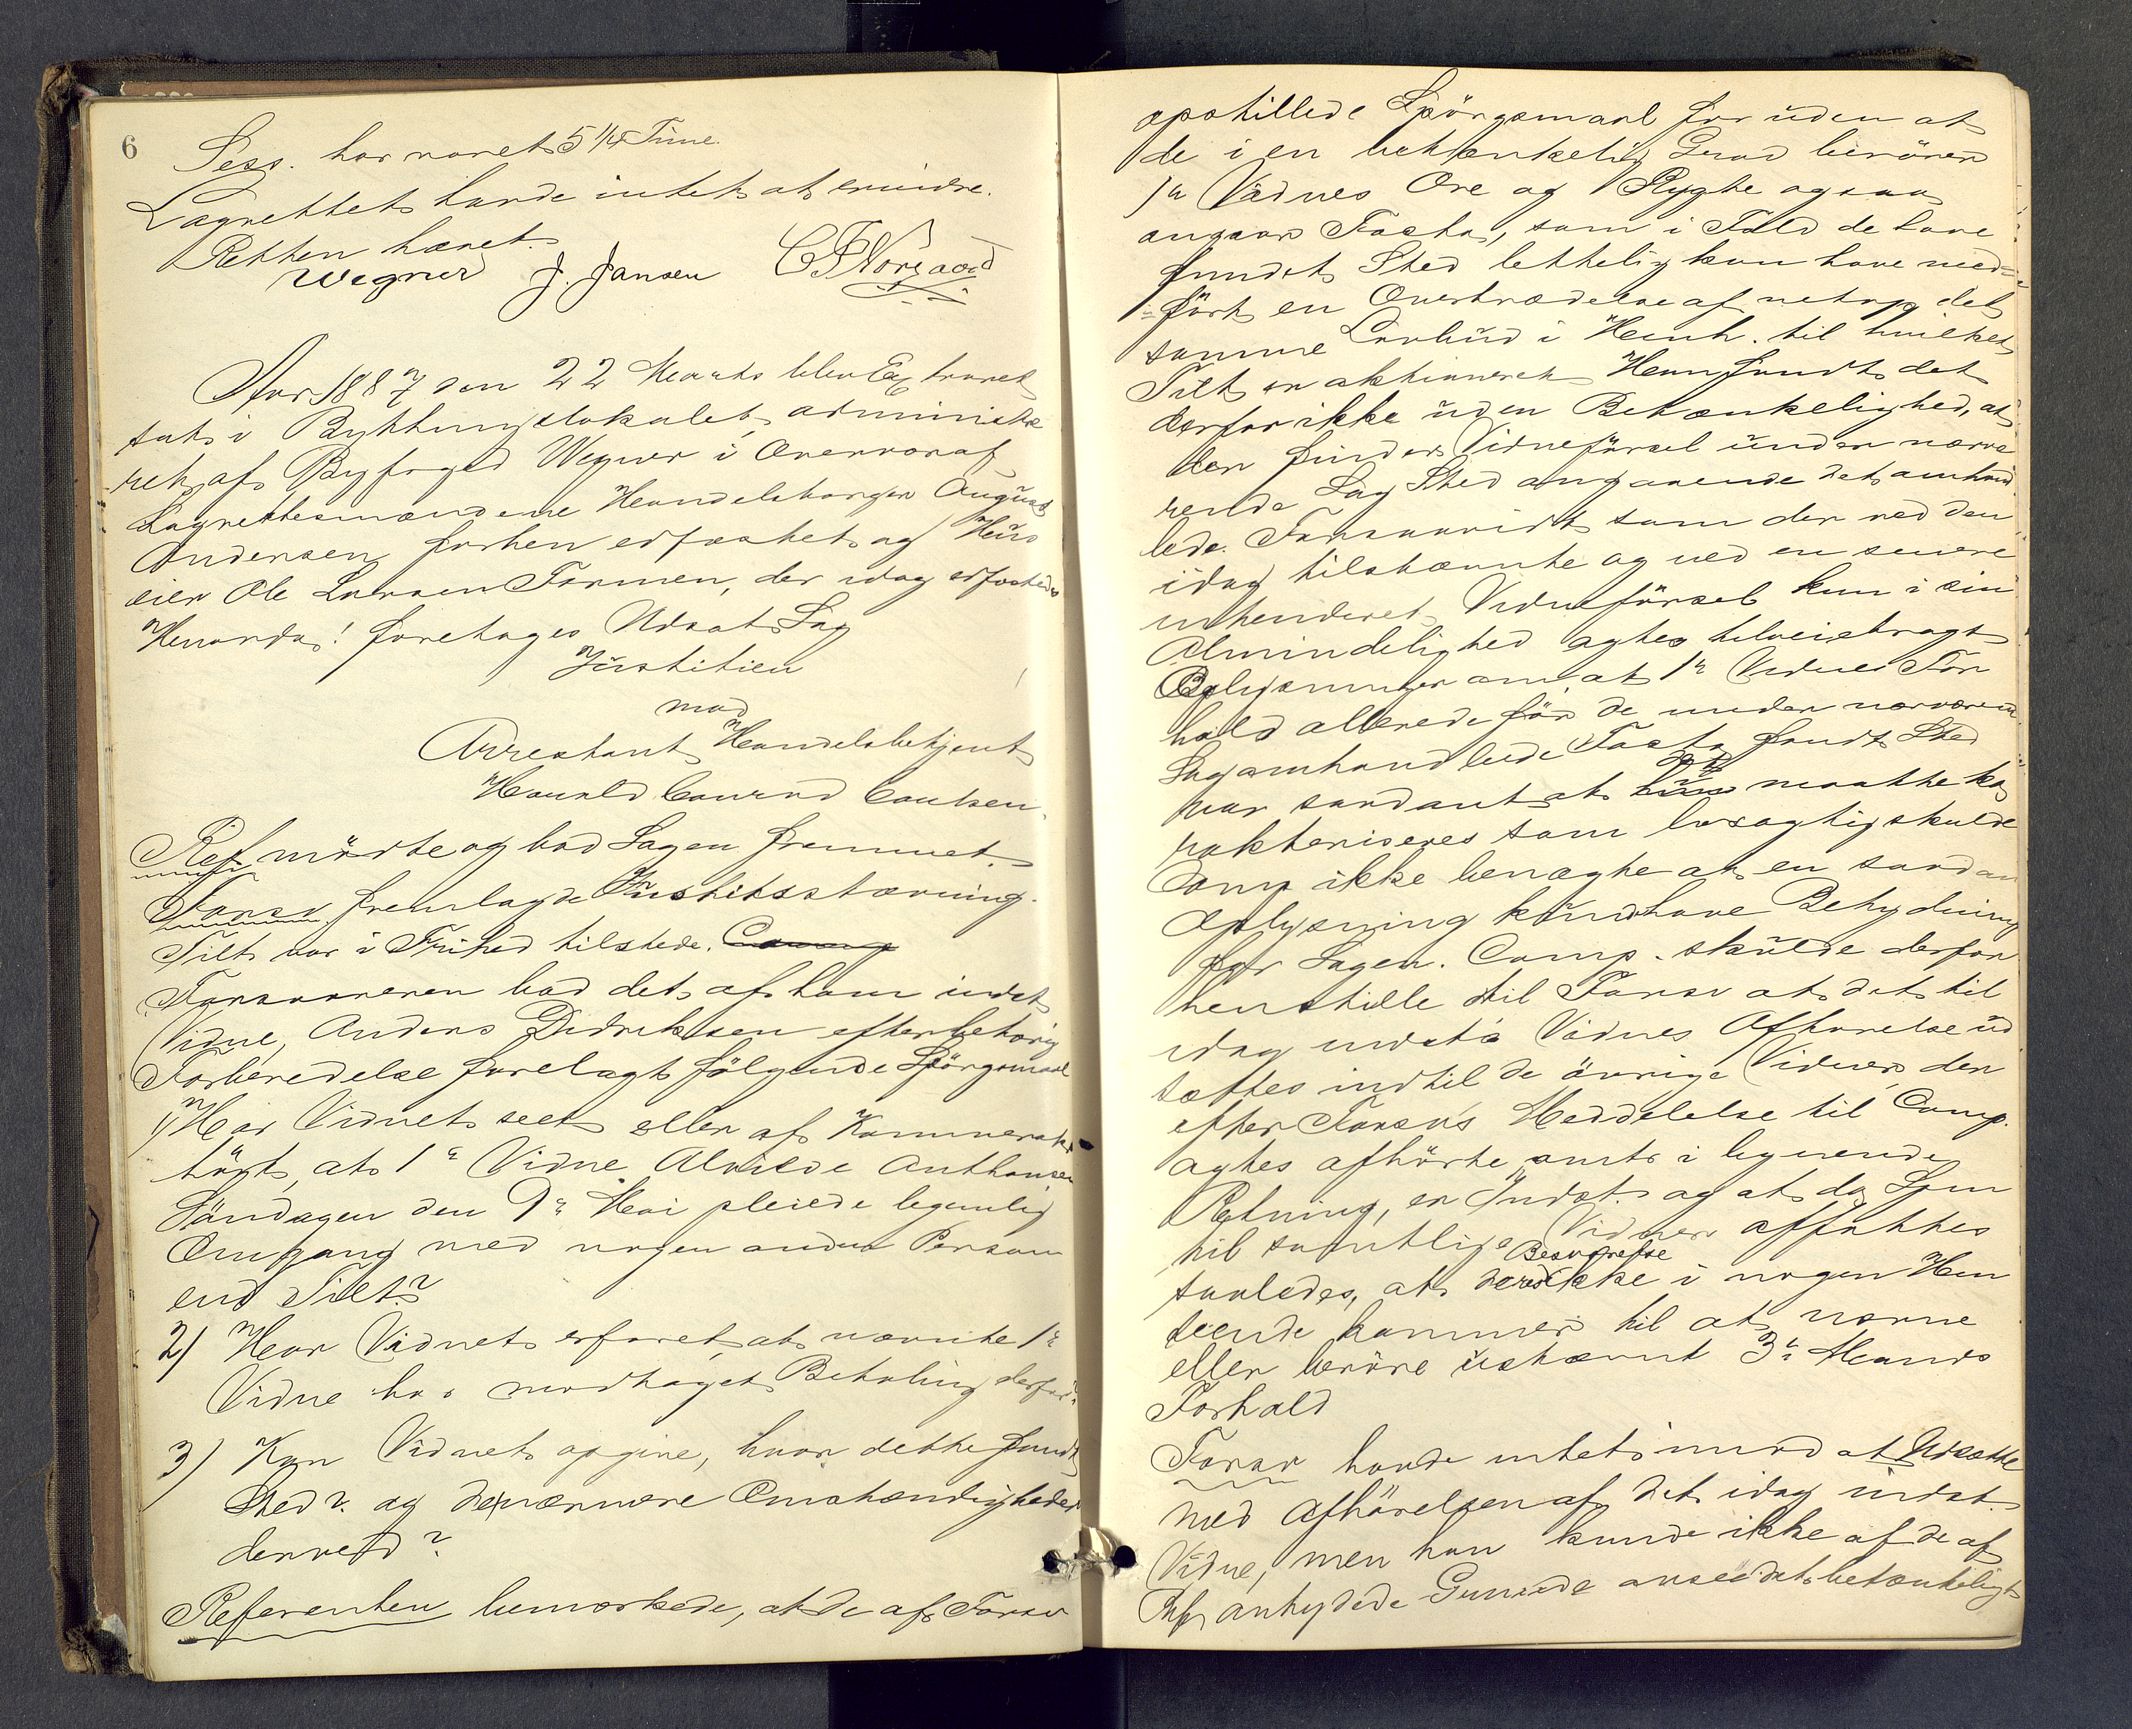 6
Sess. har varet 5 1/4 Time.
Lagrettet havde intet at erindre.
Retten hævet.
Wegner J. Jansen C F Norgaard
Aar 1887 den 22 Marts blev Extraret
sat i Bythingslokalet, administre
ret af Byfoged Wegner i Overvær af
Lagrettesmændene Handelsborger August
Andersen forhen edfæstet og Hus
eier Ole Larsen Tormen, der idag edfæstedes
Hvorda! foretoges Udsat Sag
Justitien
mod
Arrestant Handelsbetjent
Harald Conrad Coucheron
Ref. mødte og bad Sagen fremmet.
Forsv fremlagde Justitsstævning.
Tilt. var i Frihed tilstede.
Forsvareren bad det af ham indst.
Vidne, Anders Didriksen efter behørig
Forberedelse forelagt følgende Spørgsmaal
1) Har Vidnet seet eller af Kammerater
hørt, at 1ste Vidne Alvilde Anthonsen
Søndagen den 9de Mai pleiede legemlig
Omgang med nogen anden Person
end Tilt?
2) Har Vidnet erfaret, at nævnte 1ste
Vidne har modtaget Betaling derfor?
3) Kan Vidnet opgive, hvor dette fandt
Sted? og de nærmere Omstændigheder
derved?
Referenten bemærkede, at de af Forsv
opstillede Spørgsmaal for uden at
de i en betænkelig Grad berører
1ste Vidnes Ære og Rygte ogsaa
angaar Facta, som i Fald de have
fundet Sted lettelig kan have med=
=ført en Overtrædelse af netop det
samme Lovbud i Henh. til hvilket
Tilt er aktioneret. Han fandt det
derfor ikke uden Betænkelighed, at
der finder Vidneførsel under nærvæ
rende Sag Sted angaaende det omhand
lede. Forsaavidt som der ved den
idag tilstævnte og ved en senere
intenderet Vidneførsel kun i sin
Almindelighed agtes tilveiebragt
Oplysninger om, at 1ste Vidnes For
hold allerede før de under nærværende
Sag omhandlede Facta fandt Sted
var saadant at det maatte ka
rakteriseres som løsagtig skulde
Comp ikke benægte at en saadan
Oplysning kunde have Betydning
for Sagen. Comp. skulde derfor
henstille til Forsv at det til
idag indsta Vidnes Afhørelse ud
sættes indtil de øvrige Vidner, der
efter Forsv's Meddelelse til Comp.
agtes afhørte omtr i lignende
Retning, er Indst. og at da Spm
til samtlige Vidner affattes
saaledes, at deres Besvarelse ikke i nogen Hen
seende kommer til at nævne
eller berøre ustævnt 3die Mands
Forhold
Forsv havde intet imod at Udsætte
med Afhørelsen af det idag indst.
Vidne, men han kunde ikke af de af
Ref antydede Grunde ansee det betænkeligt